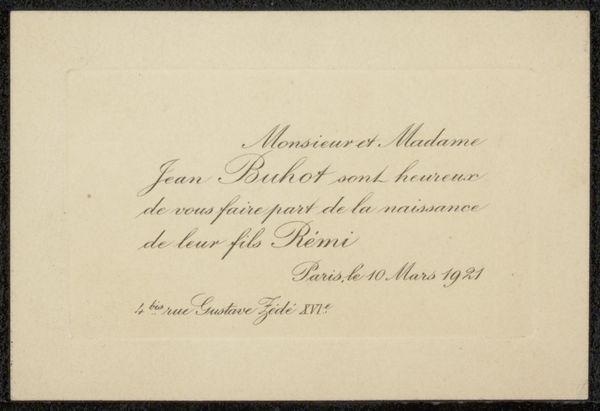 Monsieur et Madame
Jean Buhot sont heureux
de vous faire part de la naissance
de leur fils Rémi
Paris, le 10 Mars 1921
4 bis rue Gustave Zédé XVIe.